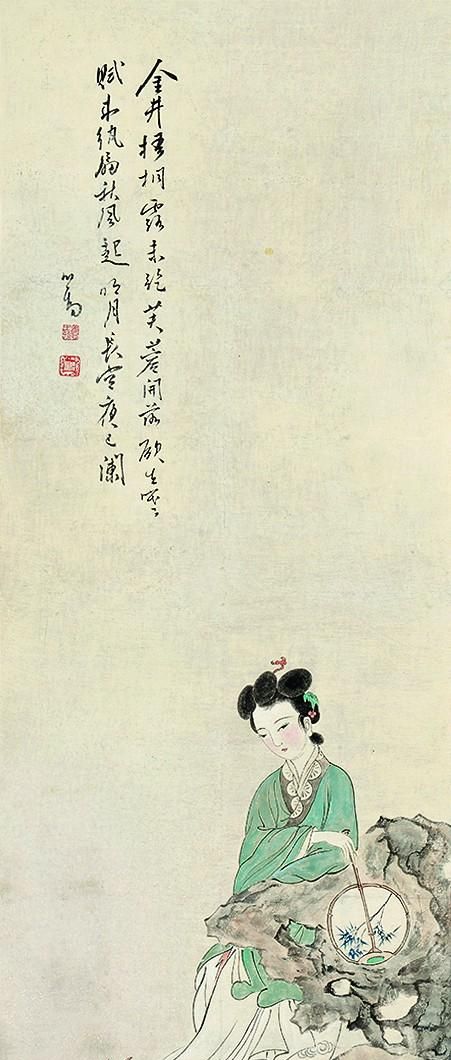 金井梧桐露未乾芙蓉開落欲生寒
賦成紈扇秋風起明月長空夜已闌
心畬